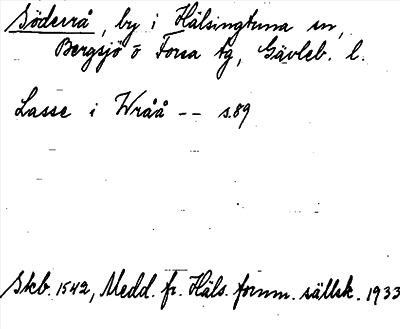 Söderrå, by i Hälsingtuna sn,
Bergsjö o Forsa tg, Gävleb. l.
Lasse i Wråå -- s.89
Skb. 1542, Medd. fr. Häls. fornm. sällsk. 1933